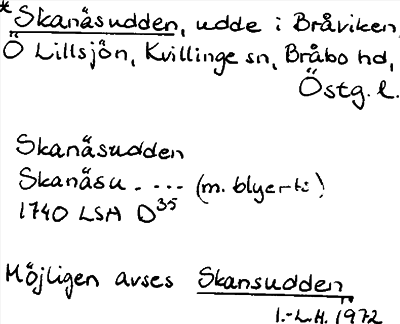 *Skanäsudden, udde i Bråviken,
Ö Lillsjön, Kvillinge sn, Bråbo hd,
Östg. l.
Skanäsudden
Skanäsu. ... (m. blyerts!)
1740 LSA D35
Möjligen avses Skansudden
I.-L.H. 1972